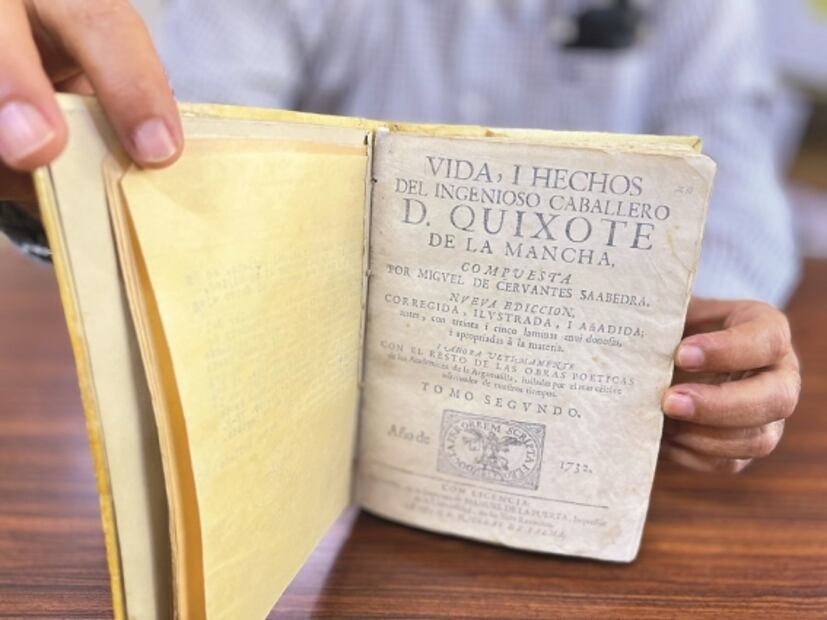 VIDA, I HECHOS
DEL INGENIOSO CABALLERO
D. QUIXOTE
DE LA MANCHA,
COMPUESTA
POR MIGVEL DE CERVANTES SAABEDRA.
NVEVA EDICCION,
CORREGIDA, ILVSTRADA, I AÑADIDA;
antes, con treinta i cinco laminas mui donosas,
i apropriadas à la materia.
I AHORA ULTIMAMENTE
CON EL RESTO DE LAS OBRAS POETICAS
de los Academicos de la Argamasilla, halladas por el mas celebre
de nuestros tiempos.
TOMO SEGVNDO.
Año de 1732.
CON LICENCIA:
MANUEL DE LA PUERTA,